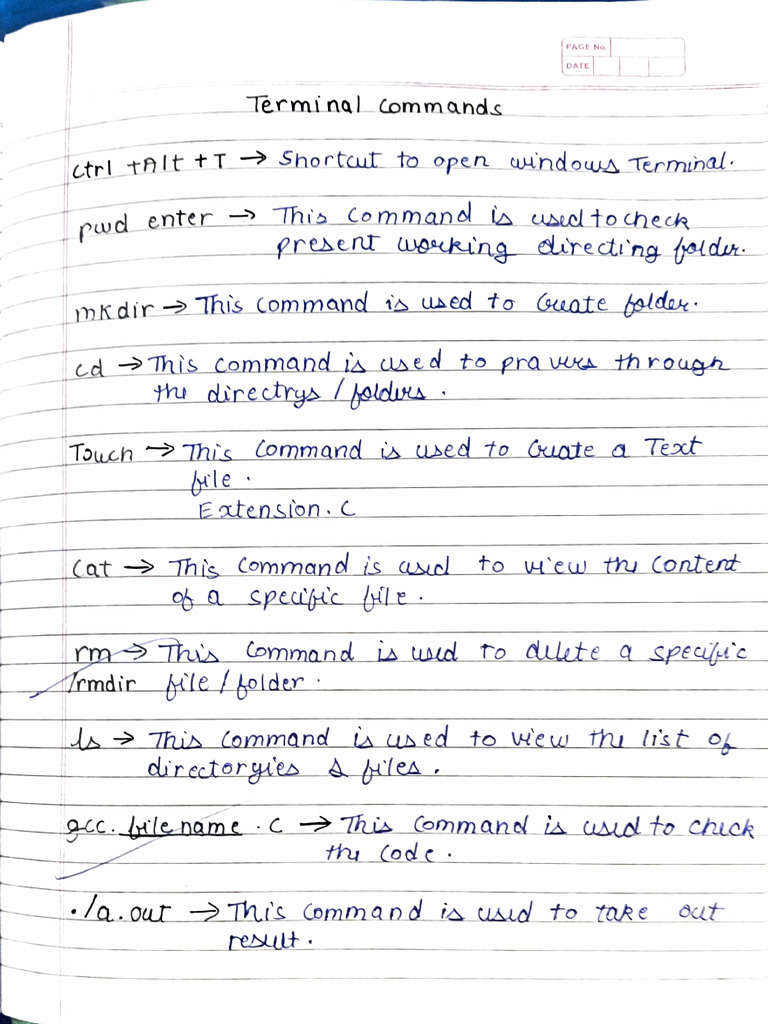 PAGE No.
DATE
Terminal Commands
ctrl +Alt +T → Shortcut to open windows Terminal.
pwd enter → This Command is used to check
present working directing folder.
mkdir → This command is used to Create folder.
cd → This command is used to pravers through
the directrys / folders.
Touch → This Command is used to Create a Text
file.
Extension. C
Cat → This Command is used to view the Content
of a specific file.
rm → This Command is used to delete a specific
/rmdir file / folder.
ls → This Command is used to view the list of
directorgies & files.
gcc. file name . C → This Command is used to check
the Code.
./a.out → This Command is used to take out
result.